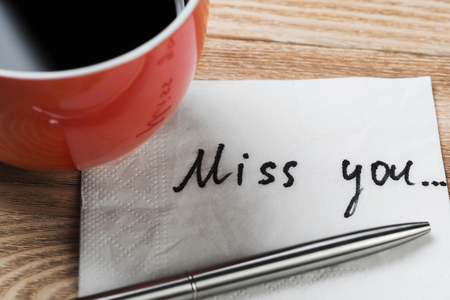 Miss you...